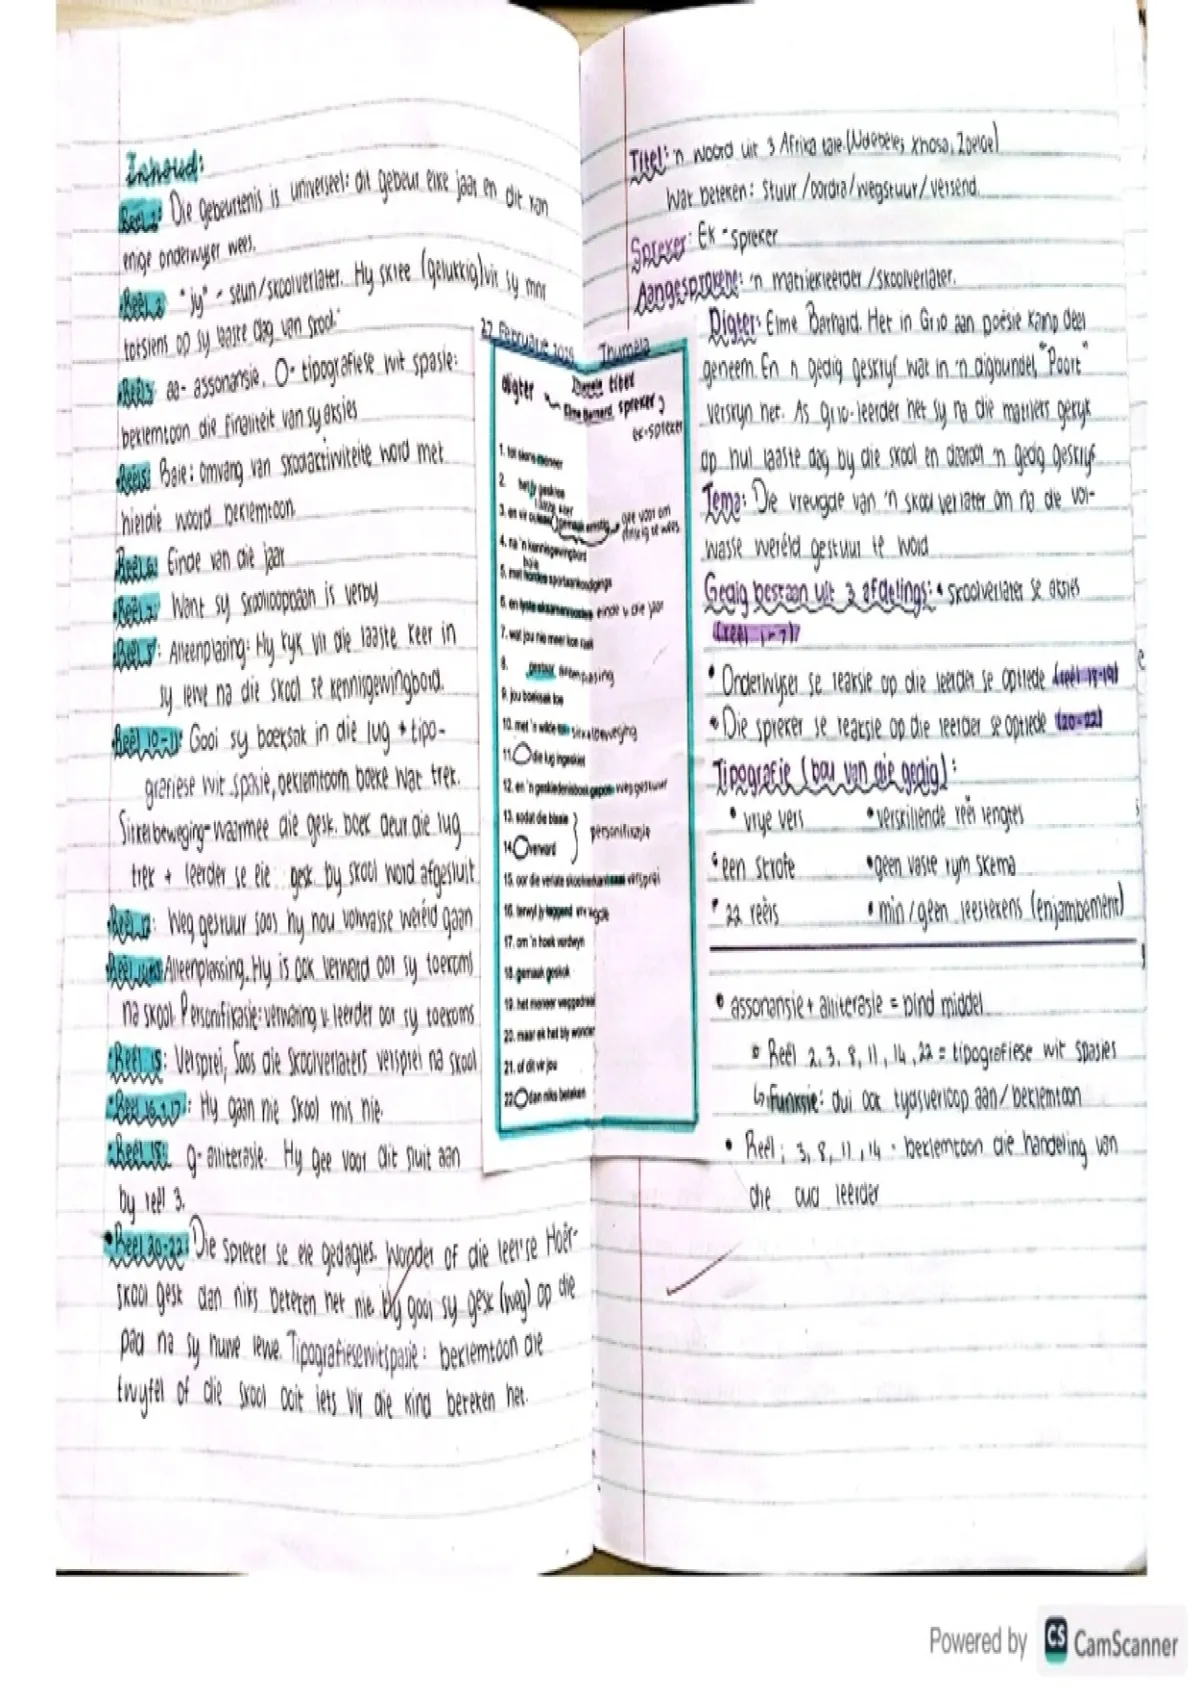 Inhoud:
Reël 1: Die gebeurtenis is universeel: dit gebeur elke jaar en dit kan
enige onderwyser wees.
Reël 2 "jy" - seun/skoolverlater. Hy skree (gelukkig) vir sy mnr
totsiens op sy laaste dag van skool.
Reël 3 aa- assonansie. O- tipografiese wit spasie:
beklemtoon die finaliteit van sy aksies
Reël 5: Baie: omvang van skoolactiwiteite word met
hierdie woord beklemtoon
Reël 6: Einde van die jaar
Reël 7: Want sy skoolloopbaan is verby
Reël 8: Alleenplasing: Hy kyk vir die laaste keer in
sy lewe na die skool se kennisgewingbord.
Reël 10-11: Gooi sy boeksak in die lug + tipo-
grafiese wit spasie, beklemtoom boeke wat trek.
Sirkelbeweging- waarmee die gesk. boek deur die lug
trek + leerder se eie gesk. by skool word afgesluit
Reël 12: Weg gestuur soos hy nou volwasse wêreld gaan
Alleenplassing. Hy is ook verward oor sy toekoms
na skool. Personifikasie: verwaring v. leerder oor sy toekoms
Reël 15: Versprei, Soos die skoolverlaters versprei na skool
Reël 16 & 17: Hy gaan nie skool mis nie.
Reël 18: g- alliterasie. Hy gee voor dit sluit aan
by reël 3.
Reël 20-22: Die spreker se eie gedagtes. Wonder of die leer'se Hoër-
skool gesk dan niks beteken het nie. Hy gooi sy gesk (weg) op die
pad na sy nuwe lewe. Tipografiesewitspasie: beklemtoon die
twyfel of die skool ooit iets vir die kind beteken het.
27 Februarie Thumela
digter titel
Elme Barnard spreker
ek-spreker
1. tot siens meneer
2. het jy geskree
laaste keer
3. en vir oulaas gemaak ernstig gee voor om
ernstig te wees
4. na 'n kennisgewingbord
baie
5. met honderde sportaankondigings
6. en lyste eksamenlokale einde v die jaar
7. wat jou nie meer kon raak
8. gestaar alleenplasing
9. jou boeksak toe
10. met 'n wilde boog sirkelbeweging
11. die lug ingeskiet
12. en 'n geskiedenisboek gepos weg gestuur
13. sodat die blaaie
14. verward personifikasie
15. oor die verlate skoolterrein versprei
16. terwyl jy laggend
17. om 'n hoek verdwyn
18. gemaak geskok
19. het meneer weggedraai
20. maar ek het bly wonder
21. of dit vir jou
22. dan niks beteken
Titel: 'n woord uit 3 Afrika tale (Ndebeles, Xhosa, Zoeloe)
Wat beteken: Stuur / oordra / wegstuur / versend.
Spreker: Ek - spreker
Aangesprokene: 'n matriekleerder / skoolverlater.
Digter: Elme Barnard. Het in Gr.10 aan poësie kamp deel
geneem. En 'n gedig geskryf wat in 'n digbundel, "Poort"
verskyn het. As Gr.10-leerder het sy na die matrieks gekyk
op hul laaste dag by die skool en daaroor 'n gedig geskryf
Tema: Die vreugde van 'n skool verlater om na die vol-
wasse wêreld gestuur te word
Gedig bestaan uit 3 afdelings: • Skoolverlater se aksies
(reël 1-17)
• Onderwyser se reaksie op die leerder se optrede (reël 18-19)
• Die spreker se reaksie op die leerder se optrede (20-22)
Tipografie (bou van die gedig):
• vrye vers • verskillende reël lengtes
• een strofe • geen vaste rym skema
• 22 reëls • min / geen leestekens (enjambement)
• assonansie + alliterasie = bind middel
Reël 2, 3, 8, 11, 14, 22 = tipografiese wit spasies
↳ Funksie: dui ook tydsverloop aan / beklemtoon
• Reël; 3, 8, 11, 14 - beklemtoon die handeling van
die oud leerder
Powered by CS CamScanner